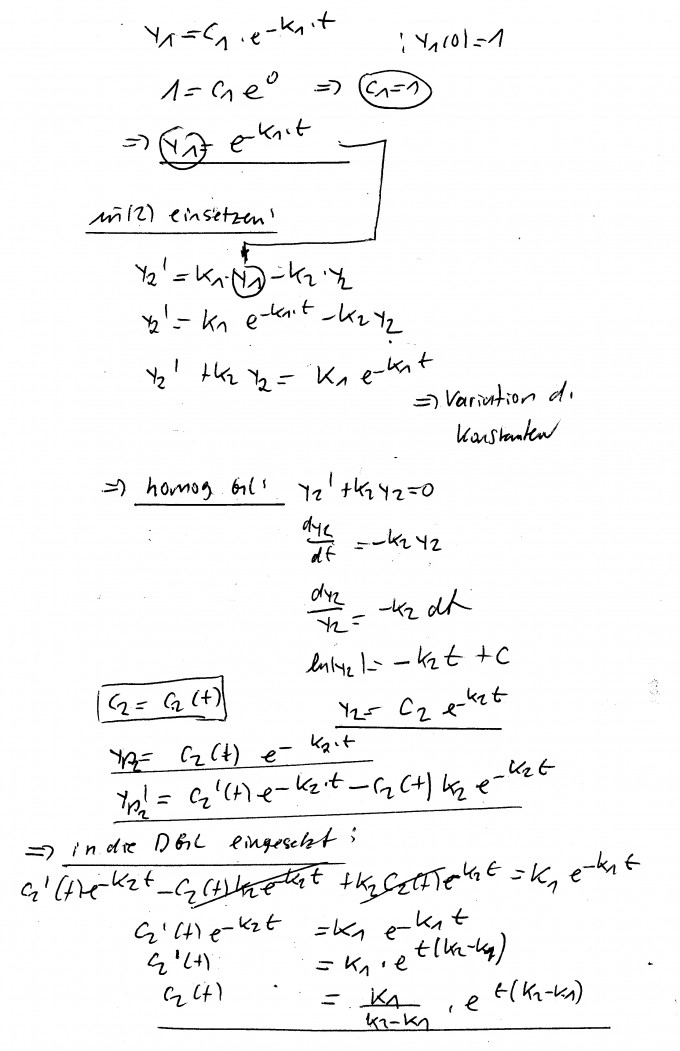 y₁ = C₁ · e^(-k₁·t) ; y₁(0) = 1
1 = C₁ e^0 ⇒ C₁ = 1
⇒ y₁ = e^(-k₁·t)
in (2) einsetzen:
y₂' = k₁ · y₁ - k₂ · y₂
y₂' = k₁ e^(-k₁·t) - k₂ y₂
y₂' + k₂ y₂ = k₁ e^(-k₁t)
⇒ Variation d.
Konstanten
⇒ homog Gl: y₂' + k₂ y₂ = 0
dy₂/dt = -k₂ y₂
dy₂/y₂ = -k₂ dt
ln|y₂| = -k₂ t + C
C₂ = C₂(t)
y₂ = C₂ e^(-k₂t)
yp₂ = C₂(t) e^(-k₂·t)
yp₂' = C₂'(t) e^(-k₂·t) - C₂(t) k₂ e^(-k₂t)
⇒ in die DGL eingesetzt:
C₂'(t) e^(-k₂t) - C₂(t) k₂ e^(-k₂t) + k₂ C₂(t) e^(-k₂t) = k₁ e^(-k₁t)
C₂'(t) e^(-k₂t) = k₁ e^(-k₁t)
C₂'(t) = k₁ · e^(t(k₂-k₁))
C₂(t) = k₁/(k₂-k₁) · e^(t(k₂-k₁))